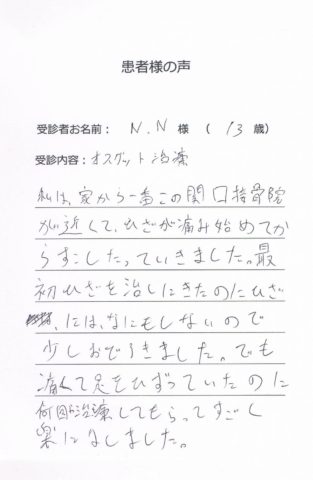 患者様の声
受診者お名前: N.N 様 ( 13 歳)
受診内容:オスグット治療
私は、家から一番この関口接骨院
が近くて、ひざが痛み始めてか
らすこしたっていきました。最
初ひざを治しにきたのにひざ
、には、なにもしないので
少しおどろきました。でも
痛くて足をひずっていたのに
何回か治療してもらってすごく
楽になしました。